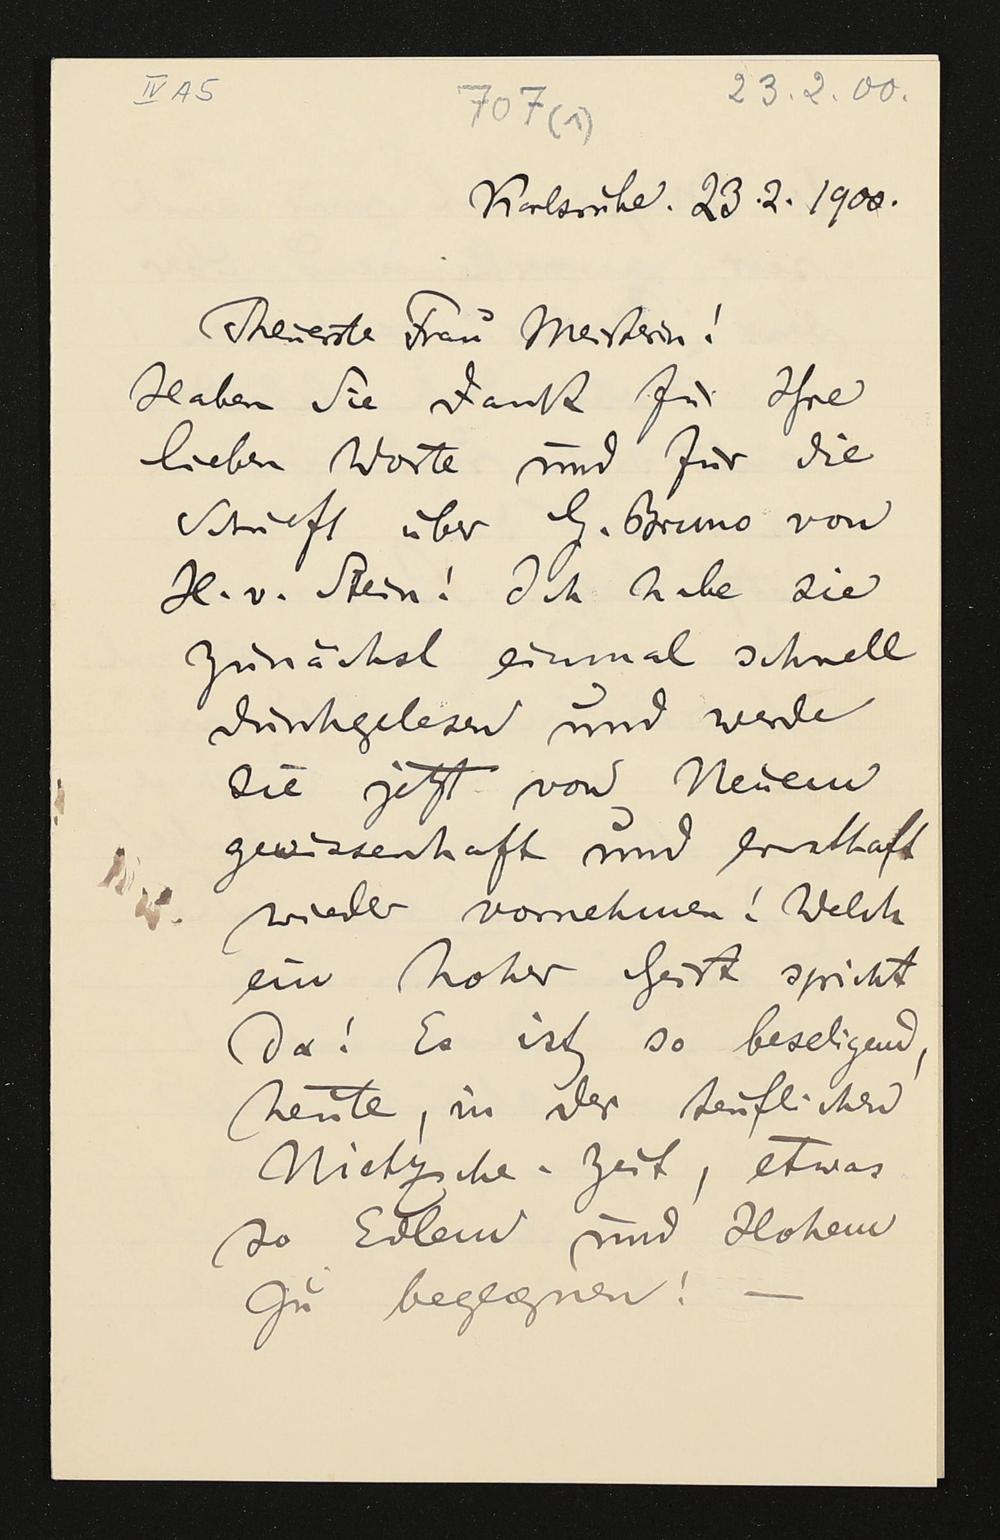 IV A 5
707(1)
23.2.00.
Karlsruhe. 23.2.1900.
Theuerste Frau Meisterin!
Haben Sie Dank für Ihre
lieben Worte und für die
Schrift über G. Bruno von
H. v. Stein! Ich habe sie
zunächst einmal schnell
durchgelesen und werde
sie jetzt von Neuem
gewissenhaft und ernsthaft
wieder vornehmen! Welch
ein hoher Geist spricht
Da! Es ist so beseligend,
heute, in der teuflischen
Nietzsche-Zeit, etwas
so Edlem und Hohem
zu begegnen! —